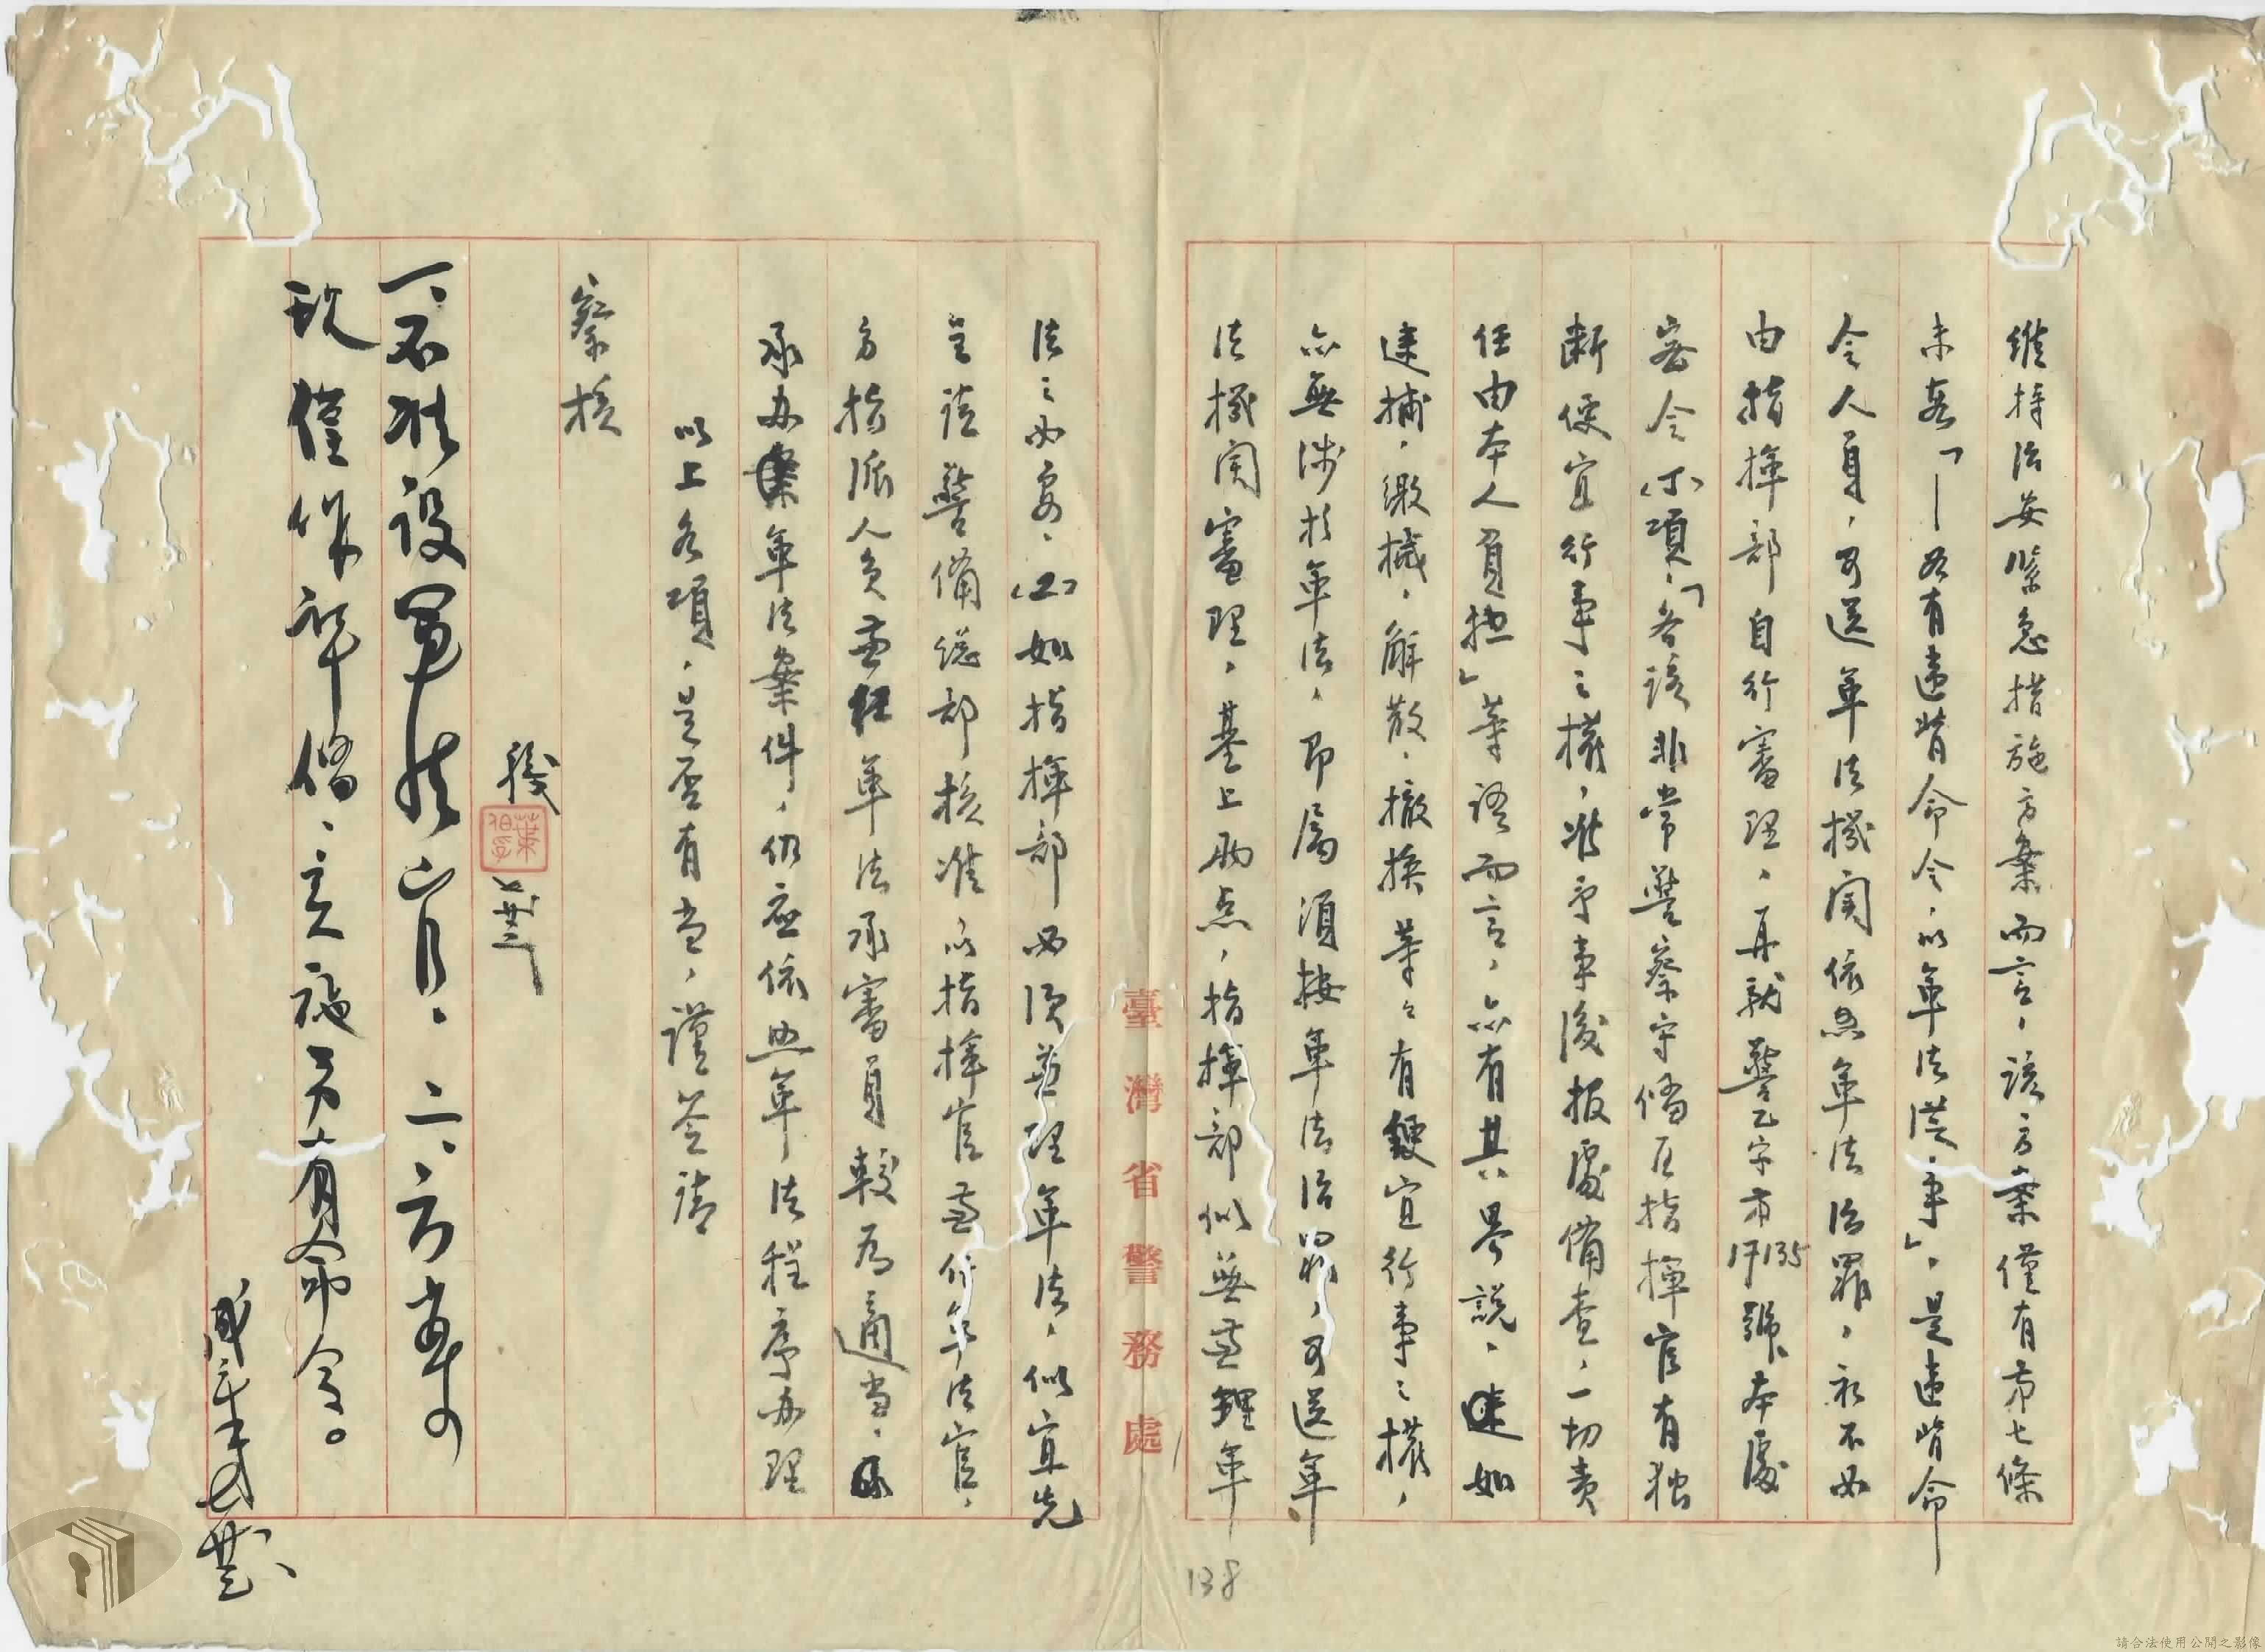 維持治安緊急措施方案而言,該方案僅有第七條
末xx「—如有違背命令,以軍法從事」,是違背命
令人員,可送軍法機関依照軍法治罪,初不必
由指揮部自行審理,再就警乙字第17135號本處
密令(小)項「各該非常警察守備區指揮官有独
断便宜行事之權,准予事後报處備查,一切責
任由本人負担」等語而言,亦有其界說,逮如
逮捕,繳械,解散,撤換等々有便宜行事之權,
亦無涉於軍法,即屬須按軍法治罪,可送軍
法機関審理,基上兩点,指揮部似無兼理軍
法之必要、(二)如指揮部必須兼理軍法,似宜先
呈請警備總部核准以指揮官兼任軍法官,
方指派人員兼任軍法承審員較為適当,
承办軍法案件,仍应依照軍法程序办理
以上各項,是否有当,謹签請
察核
職
葉
一、不准設軍法官。二、方案中
現僅作準備,實施另有命令。
臺灣省警務處
138
請合法使用公開之影像